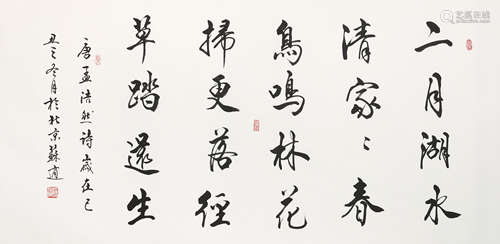 二月湖水
清家〻春
鳥鳴林花
掃更落徑
草踏還生
唐孟浩然詩歲在己
丑之冬月於北京蘇適
艺狐在线